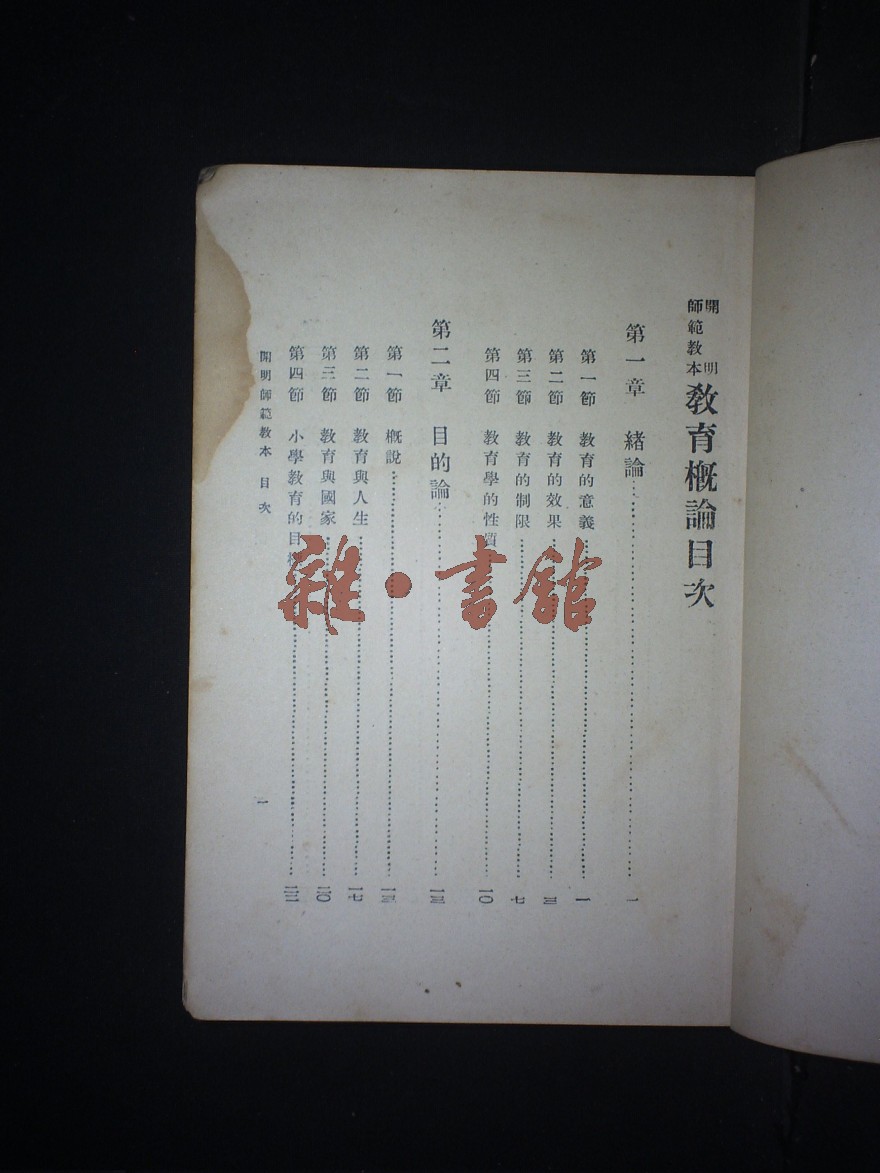 開明
師範教本
教育概論目次
第一章 緒論……一
第一節 教育的意義……一
第二節 教育的效果……三
第三節 教育的制限……七
第四節 教育學的性質……一〇
第二章 目的論……一三
第一節 概說……一三
第二節 教育與人生……一七
第三節 教育與國家……二〇
第四節 小學教育的目……
開明師範教本 目次 一
雜·書館